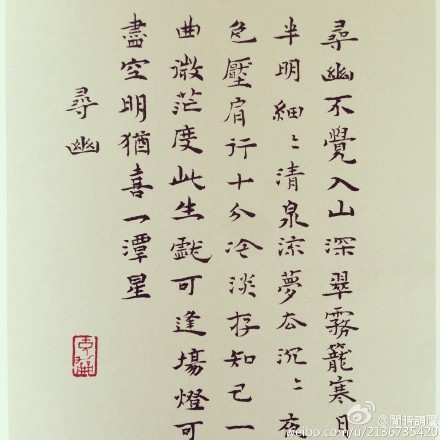 尋幽不覺入山深翠霧籠寒月
半明細〻清泉流夢去沉〻夜
色壓肩行十分冷淡存知己一
曲微茫度此生戲可逢場燈可
盡空明猶喜一潭星
尋幽
weibo.com/u/2136735420